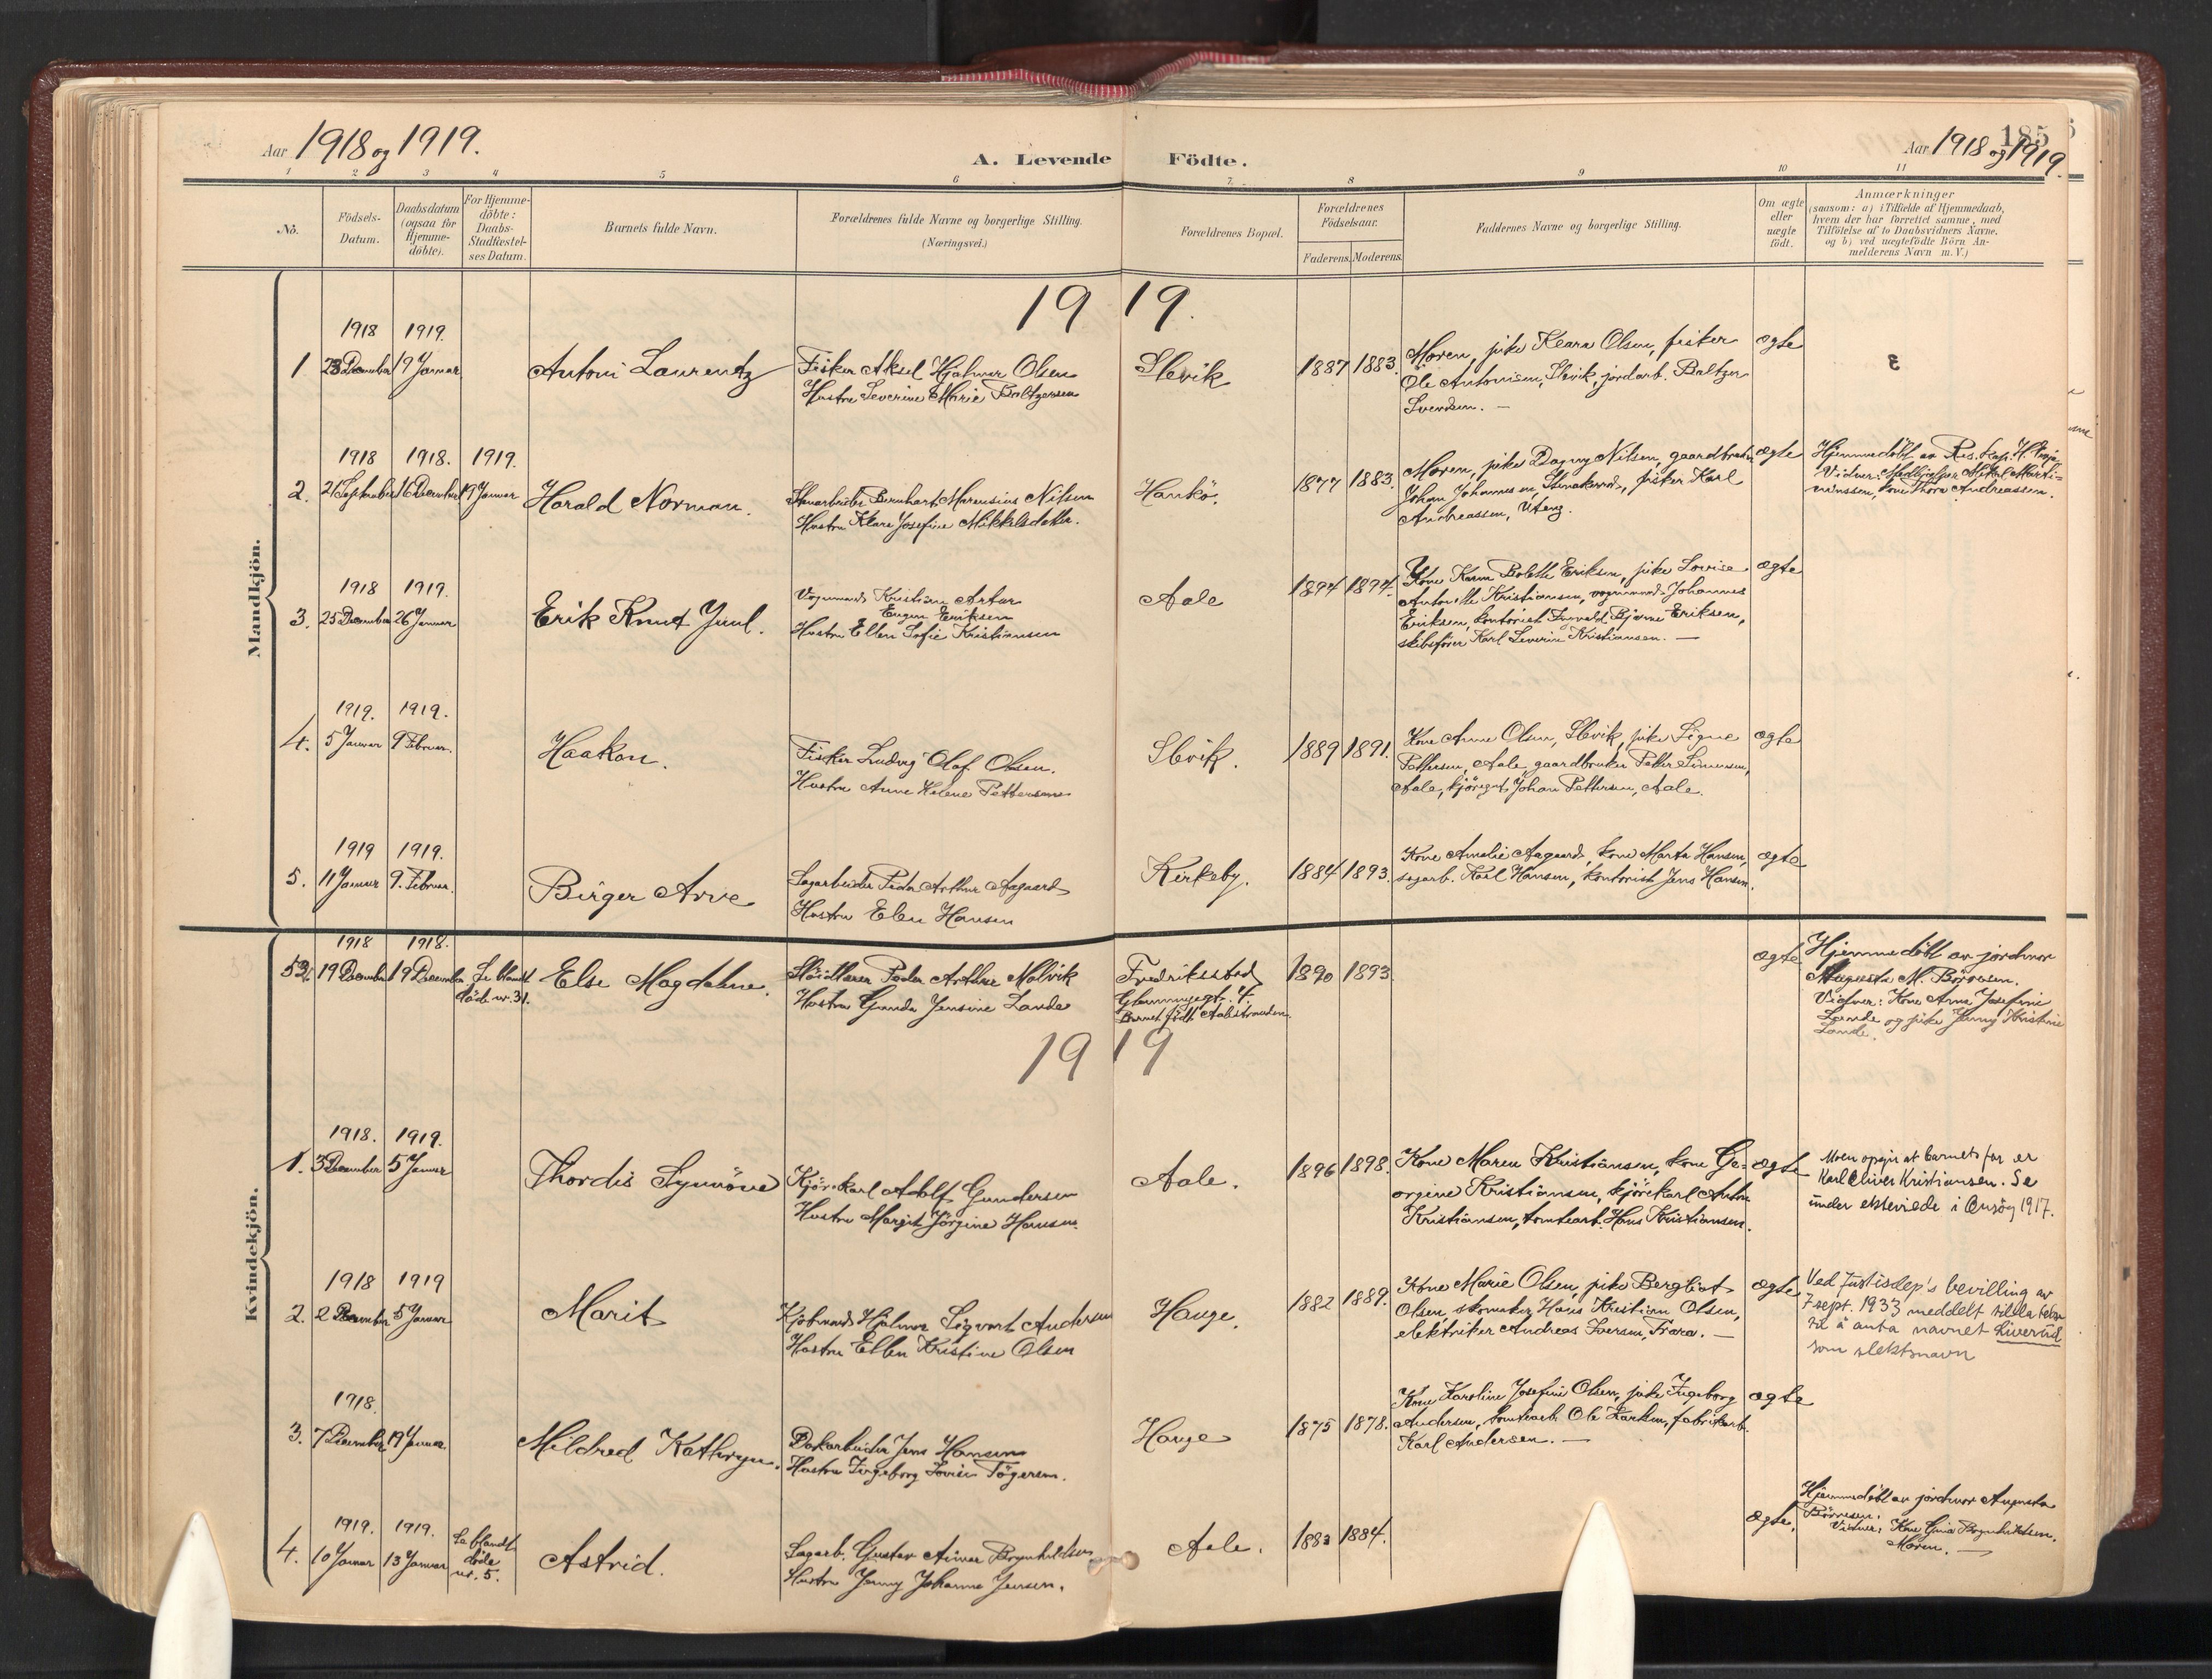 Aar 1918 og 1919.
A. Levende Födte.
185
Aar 1918 og 1919.
1 2 3 4 5 6 7. 8 9 10 11
No.
Födsels-
Datum.
Daabsdatum
(ogsaa for
Hjemme-
döbte).
For Hjemme-
döbte:
Daabs-
Stadfæstel-
ses Datum.
Barnets fulde Navn.
Forældrenes fulde Navne og borgerlige Stilling.
(Næringsvei.)
Forældrenes Bopæl.
Forældrenes
Födselsaar.
Faderens. Moderens.
Faddernes Navne og borgerlige Stilling.
Om ægte
eller
uægte
födt.
Anmærkninger
(saasom: a) i Tilfælde af Hjemmedaab,
hvem der har forrettet samme, med
Tilföielse af to Daabsvidners Navne,
og b) ved uægtefödte Börn An-
melderens Navn m. V.)
Mandkjön.
1919.
1918 1919.
1 23 December 19 Januar
Antoni Laurentz
Fisker Aksel Hjalmar Olsen
Hustru Severine Marie Baltzersen
Slevik
1887 1883.
Moren, pike Klara Olsen, fisker
Ole Antonisen, Slevik, jordarb. Baltzer
Svendsen. —
ægte
1918 1918. 1919.
2. 21 September 16 December 19 Januar
Harald Norman.
Bernhart Marensius Nilsen
Hustru Klara Josefine Mikkelsdatter.
Hankö.
1877 1883.
Moren, pike Dagny Nilsen, gaardbruker
Johan Johannesen, fisker Karl
Andreassen, Uteng.
ægte
Hjemmedöbt av Res. Kap.
Vidner:
kone Thora Andreassen.
1918 1919.
3. 25 December 26 Januar
Erik Knut Juul.
Vognmand Kristian Artur
Eugen Eriksen
Hustru Ellen Sofie Kristiansen
Aale
1894 1894.
Kone Karen Bolette Eriksen, pike Lovise
Antonette Kristiansen, vognmand Johannes
Eriksen, kontorist Ingvald Bjarne Eriksen,
skibsförer Karl Severin Kristiansen. —
ægte
1919. 1919.
4. 5 Januar 9 Februar.
Haakon.
Fisker Ludvig Olaf Olsen.
Hustru Anne Helene Pettersen
Slevik.
1889 1891.
Kone Anne Olsen, Slevik, pike Signe
Pettersen, Aale, gaardbruker Petter Simensen,
Aale, Johan Pettersen, Aale.
ægte
1919 1919.
5. 11 Januar 9. Februar.
Birger Arve
Sagarbeider Peder Arthur Aagaard
Hustru Elen Hansen
Kirkeby.
1884 1893.
Kone Amalie Aagaard, kone Marta Hansen,
sagarb. Karl Hansen, kontorist Jens Hansen.
ægte
Kvindekjön.
1918 1918.
19 December 19 December Se blandt
döde nr. 31.
Else Magdalene.
Peder Arthur Malvik
Hustru Gunda Jensine Lande
Fredriksstad
Glemmengt. 4.
Barnet födt Aalestranden.
1890 1893
ægte
Hjemmedöbt av jordmor
Augusta M. Börresen.
Vidner: Kone Anna Josefine
Lande og pike Jenny Kristine
Lande.
1919
1918. 1919.
1. 3 December 5 Januar
Thordis Synnöve
Kjörekarl Adolf Gundersen
Hustru Margit Jörgine Hansen.
Aale.
1896 1898.
Kone Maren Kristiansen, kone Ge-
orgine Kristiansen, kjörekarl Anton
Kristiansen, tomtearb. Hans Kristiansen.
ægte
Moren opgir at barnets far er
Karl Oliver Kristiansen. Se
under ektevigde i Onsöy 1917.
1918 1919
2. 2 December 5 Januar
Marit
Kjöbmand Hjalmar Sigvart Andersen
Hustru Ellen Kristine Olsen
Hauge.
1882 1889.
Kone Marie Olsen, pike Bergliot
Olsen, skomaker Hans Kristian Olsen,
elektriker Andreas Iversen, Trara. —
ægte
Ved Justisdep's bevilling av
7 sept. 1933 meddelt tillatelse
til å anta navnet Liverud
som slektsnavn
1918.
3. 7 December 19 Januar.
Mildred Kathryn.
Jens Hansen
Hustru Ingeborg Lovise Tögersen.
Hauge
1875 1878.
Kone Karoline Josefine Olsen, pike Ingeborg
Andersen, tomtearb. Ole Larsen, fabrikarb.
Karl Andersen. —
ægte
1919. 1919.
4. 10 Januar 13 Januar Se blandt
döde
nr. 5.
Astrid.
Sagarb. Gustav Brynhildsen
Hustru Jenny Johanne Jensen.
Aale.
1883 1884.
ægte.
Hjemmedöbt av jordmor Augusta
Börresen.
Vidner: Kone Brynhildsen.
Moren. —